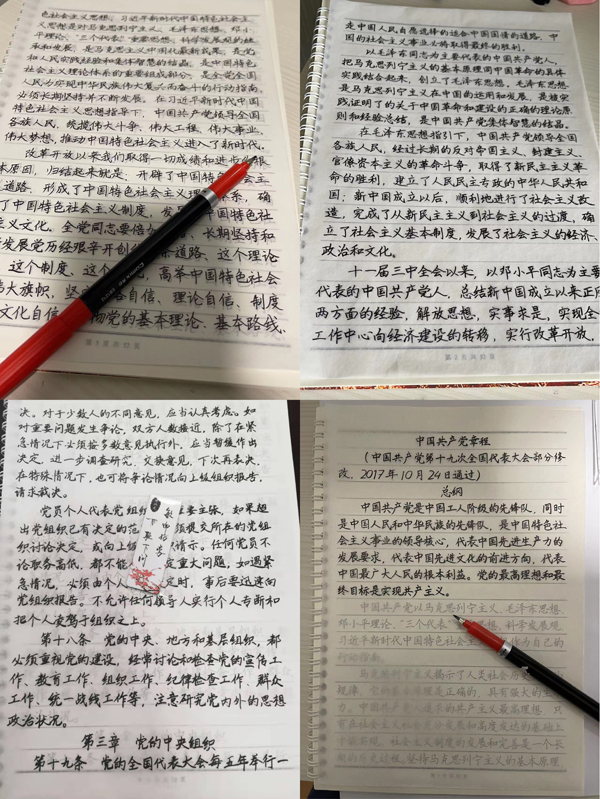 色社会主义思想。习近平新时代中国特色社会主
义思想是对马克思列宁主义、毛泽东思想、邓小
平理论、“三个代表”重要思想、科学发展观的继
承和发展,是马克思主义中国化最新成果,是党
和人民实践经验和集体智慧的结晶,是中国特色
社会主义理论体系的重要组成部分,是全党全国
人民为实现中华民族伟大复兴而奋斗的行动指南,
必须长期坚持并不断发展。在习近平新时代中国
特色社会主义思想指导下,中国共产党领导全国
各族人民,统揽伟大斗争、伟大工程、伟大事业、
伟大梦想,推动中国特色社会主义进入了新时代。
改革开放以来我们取得一切成绩和进步的根
本原因,归结起来就是:开辟了中国特色社会主
道路,形成了中国特色社会主义理 体系,确
了中国特色社会主义制度,发 中国特色社
主义文化。全党同志要倍加 长期坚持和
发展党历经艰辛开创的 条道路、这个理论
这个制度、这个 高举中国特色社会
伟大旗帜,坚 自信、理论自信、制度
文化自信 彻党的基本理论、基本路线、
第5页共52页
是中国人民自愿选择的适合中国国情的道路,中
国的社会主义事业必将取得最终的胜利。
以毛泽东同志为主要代表的中国共产党人,
把马克思列宁主义的基本原理同中国革命的具体
实践结合起来,创立了毛泽东思想。毛泽东思想
是马克思列宁主义在中国的运用和发展,是被实
践证明了的关于中国革命和建设的正确的理论原
则和经验总结,是中国共产党集体智慧的结晶。
在毛泽东思想指引下,中国共产党领导全国
各族人民,经过长期的反对帝国主义、封建主义、
官僚资本主义的革命斗争,取得了新民主主义革
命的胜利,建立了人民民主专政的中华人民共和
国;新中国成立以后,顺利地进行了社会主义改
造,完成了从新民主主义到社会主义的过渡,确
立了社会主义基本制度,发展了社会主义的经济、
政治和文化。
十一届三中全会以来,以邓小平同志为主要
代表的中国共产党人,总结新中国成立以来正反
两方面的经验,解放思想,实事求是,实现全
工作中心向经济建设的转移,实行改革开放,
第2页共52页
决。对于少数人的不同意见,应当认真考虑。如
对重要问题发生争论,双方人数接近,除了在紧
急情况下必须按多数意见执行外,应当暂缓作出
决定,进一步调查研究,交换意见,下次再表决;
在特殊情况下,也可将争论情况向上级组织报告,
请求裁决。
党员个人代表党组 重要主张,如果超
出党组织已有决定的范 须提交所在的党组
织讨论决定,或向上级 请示。任何党员不
论职务高低,都不能 定重大问题;如遇紧
急情况,必须由个人 定时,事后要迅速向
党组织报告。不允许任何领导人实行个人专断和
把个人凌驾于组织之上。
第十八条 党的中央、地方和基层组织,都
必须重视党的建设,经常讨论和检查党的宣传工
作、教育工作、组织工作、纪律检查工作、群众
工作、统一战线工作等,注意研究党内外的思想
政治状况。
第三章 党的中央组织
第十九条 党的全国代表大会每五年举行一
中国共产党章程
(中国共产党第十九次全国代表大会部分修
改,2017年10月24日通过)
总纲
中国共产党是中国工人阶级的先锋队,同时
是中国人民和中华民族的先锋队,是中国特色
社会主义事业的领导核心,代表中国先进生产力的
发展要求,代表中国先进文化的前进方向,代表
中国最广大人民的根本利益。党的最高理想和最
终目标是实现共产主义。
中国共产党以马克思列宁主义、毛泽东思想、
邓小平理论、“三个代表” 思想、科学发展观、
习近平新时代中国特色社会 作为自己的
行动指南。
马克思列宁主义揭示了人类社会历史
规律,它的基本原理是正确的,具有强大的生
力。中国共产党人追求的共产主义最高理想,只
有在社会主义社会充分发展和高度发达的基础上
才能实现。社会主义制度的发展和完善是一个长
期的历史过程。坚持马克思列宁主义的基本原理